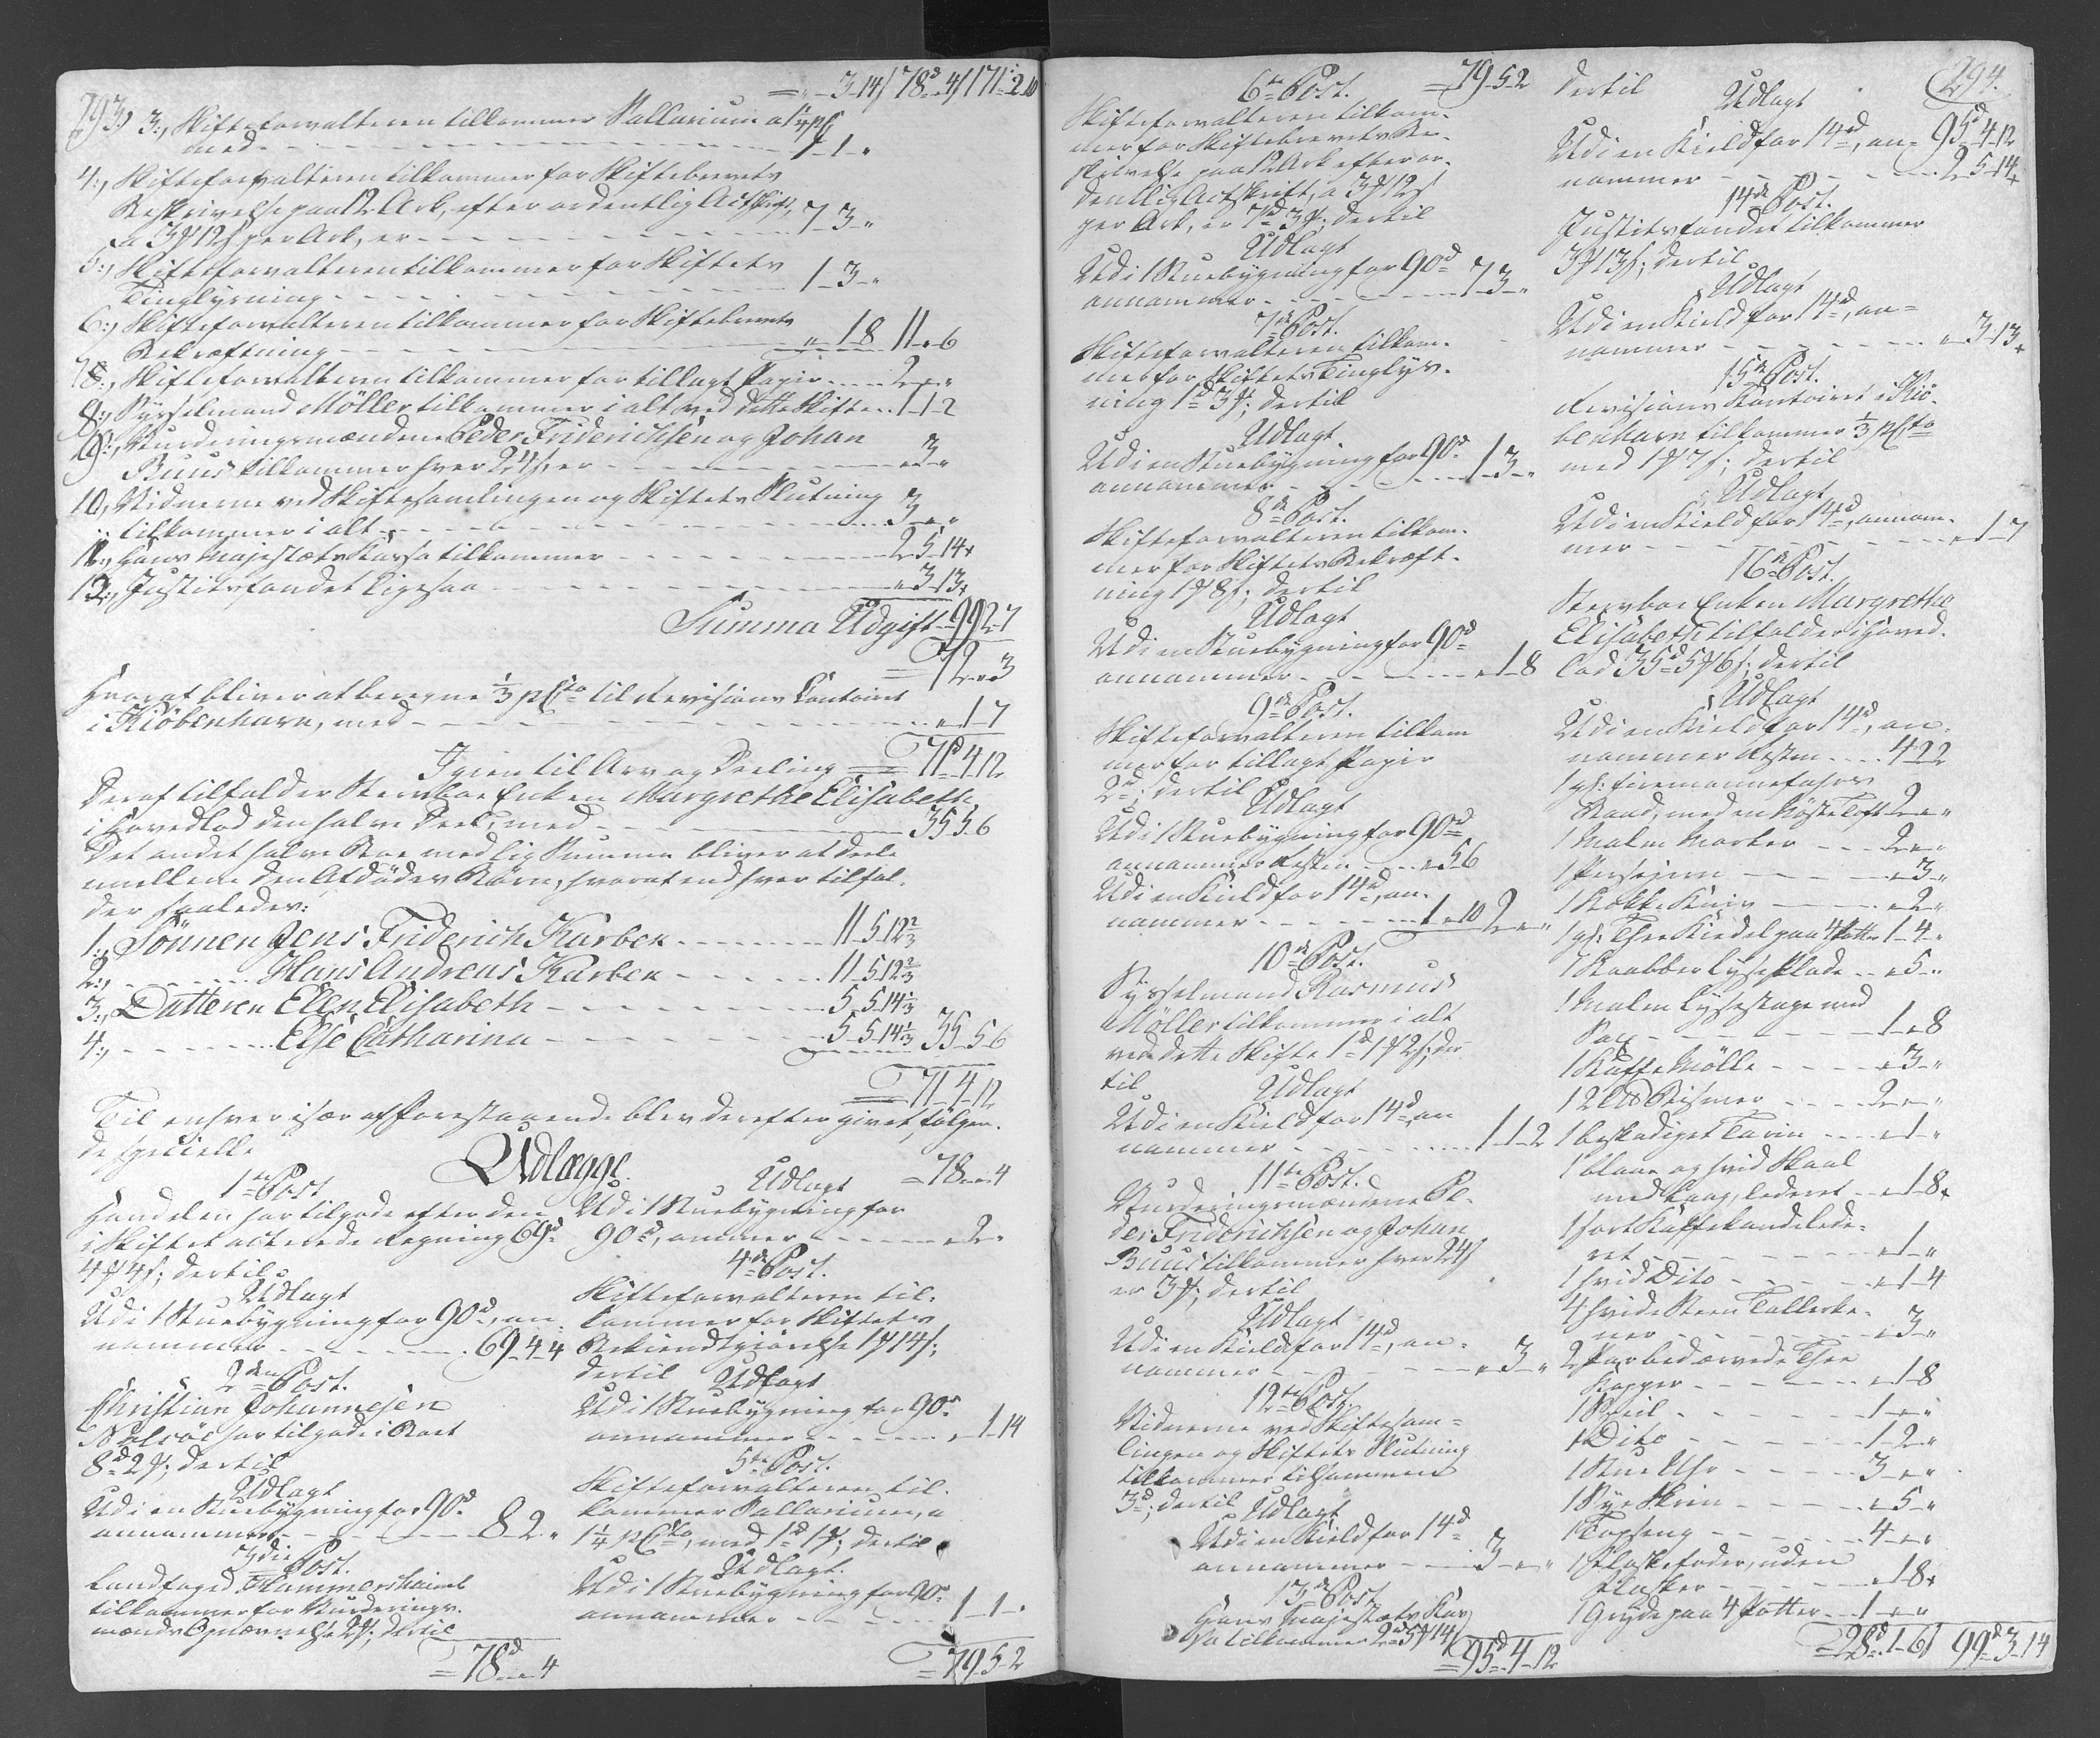 293.
= " 3 14 / 78d " 4 / 171 " 2 10
3:, Skifteforvalteren tilkommer Sallarium a 1¼ pCt
med - - - 1 1 "
4:, Skifteforvalteren tilkommer for Skiftebrevets
Beskrivelse paa 12 Ark, efter ordentlig Actskrift,
a 3 ₰ 12 s per Ark, er - - - 7 3 "
5:, Skifteforvalteren tilkommer for Skiftets
Tinglysning - - - 1 3 "
6:, Skifteforvalteren tilkommer for Skiftebrevets
Bekræftning - - - " 1 8 11 " 6
7:, Skifteforvalteren tilkommer for tillagt Papir - - - 2 " "
8:, Sysselmand Möller tilkommer i alt ved dette Skifte - - 1 1 2
9:, Vurderingsmændene Peder Friderichsen og Johan
Buus tilkommer hver 24 s, er - - - " 3 "
10, Vidnerne ved Skiftesamlingen og Skiftets Slutning
tilkommer i alt - - - 3 " "
11:, Hans Majestæts Kassa tilkommer - - - 2 5 14
12:, Justitsfondet ligesaa - - - " 3 13
Summa Udgift 99 2 7
= 72 " 3
Hvoraf bliver at beregne ⅓ pCto til Revisions Contoiret
i Kiöbenhavn, med - - - " 1 7
Igien til Arv og Deeling = 71d 4 12
Deraf tilfalder Stervboe Enken Margrethe Elisabeth
i Hovedlod den halve Deel, med - - - 35 5 6
Det andet halve Boe med lig Summa bliver at deele
mellem den Afdödes Börn, hvoraf endhver tilfal-
der saaledes:
1:, Sönnen Jens Friderich Karben - - - 11 5 12⅔
2:, - - - Hans Andreas Karben - - - 11 5 12⅔
3:, Datteren Ellen Elisabeth - - - 5 5 14⅓
4:, - - - Else Catharina - - - 5 5 14⅓ 35 5 6
= 71 4 12
Til enhver især af Forestaaende blev derefter givet følgen-
de specielle
Udlægge.
1te Post
Handelen har tilgode efter den
i Skiftet acterede Regning 69d
4 ₰ 4 s; dertil
Udlagt
Udi 1 Stuebygning for 90d, an
nammer - - - 69 4 4
2den Post.
Christian Johannesen
Nolsöe har tilgode i Boet
8d 2 ₰; dertil
Udlagt
Udi en Stuebygning for 90d
annammer - - - 8 2 "
3die Post.
Landfoged Hammershaimb
tilkommer for Vurderings-
mænds Opnævnelse 2 ₰; dertil
= 78d " 4
Udlagt = 78 " 4
Udi 1 Stuebygning for
90d, ammer - - - " 2 "
4de Post.
Skifteforvalteren til-
kommer for Skiftets
Bekiendtgiörelse 1 ₰ 14 s;
dertil Udlagt
Udi 1 Stuebygning for 90d
annammer - - - " 1 14
5te Post.
Skifteforvalteren til-
kommer Sallarium, a
1¼ pCto, med 1d 1 ₰; dertil
Udlagt.
Udi 1 Stuebygning for 90d
annammer - - - 1 1 "
= 79 5 2
6te Post. = 79 5 2
Skifteforvalteren tilkom-
mer for Skiftebrevets Be-
skrivelse paa 12 Ark efter or-
dentlig Actskrift, a 3 ₰ 12 s
per Ark, er 7d 3 ₰; dertil
Udlagt
Udi 1 Stuebygning for 90d
annammer - - - 7 3 "
7de Post.
Skifteforvalteren tilkom-
mer for Skiftets Tinglys-
ning 1d 3 ₰; dertil
Udlagt
Udi en Stuebygning for 90d
annammer - - - 1 3 "
8de Post.
Skifteforvalteren tilkom-
mer for Skiftets Bekræft-
ning 1 ₰ 8 s; dertil
Udlagt
Udi en Stuebygning for 90d
annammer - - - " 1 8
9de Post.
Skifteforvalteren tilkom
mer for tillagt Papir
2d; dertil
Udlagt
Udi 1 Stuebygning for 90d
annammer Resten - - - " 5 6
Udi en Kield for 14d, an-
nammer - - - 1 " 10 2 " "
10de Post.
Sysselmand Rasmus
Möller tilkommer i alt
ved dette Skifte 1d 1 ₰ 2 s; der
til
Udlagt
Udi en Kield for 14d, an
nammer - - - 1 1 2
11te Post.
Vurderingsmændene Pe-
der Friderichsen og Johan
Buus tilkommer hver 24 s
er 3 ₰; dertil
Udlagt
Udi en Kield for 14d, an-
nammer - - - " 3 "
12te Post.
Vidnerne ved Skiftesam-
lingen og Skiftets Slutning
tilkommer tilsammen
3d; dertil Udlagt
Udi en Kield for 14d
annammer - - - 3 " "
13de Post.
Hans Majestæts Kas
sa tilkommer 2d 5 ₰ 14 s
= 95d 4 12
294.
dertil
Udlagt
95d 4 12
Udi en Kield for 14d, an-
nammer - - - 2 5 14
14de Post.
Justitsfondet tilkommer
3 ₰ 13 s; dertil
Udlagt
Udi en Kield for 14d, an-
nammer - - - " 3 13
15de Post.
Revisions Kontoiret i Kiö-
benhavn tilkommer ⅓ pCto
med 1 ₰ 7 s; dertil
Udlagt
Udi en Kield for 14d, annam-
mer - - - " 1 7
16de Post.
Stervboe Enken Margrethe
Elisabeth tilfalder i Hoved-
lod 35d 5 ₰ 6 s; dertil
Udlagt
Udi en Kield for 14d, an-
nammer Resten - - - 4 2 2
1 gl: firemannefahrs
Baad, med en Köste Toft 2 " "
1 Malm Morter - - - 2 " "
1 Persejern - - - " 3 "
1 Kokke Kniv - - - " 2 "
1 gl: Thee Kiedel paa 4 Potter 1 4 "
7 Kaabber Lyse Plade - - - " 5 "
1 Malm Lysestage med
Sax - - - 1 " 8
1 Kaffe Mölle - - - " 3 "
1 2 L℔ Bismer - - - 2 " "
1 beskadiget Tarin - - - " 1 "
1 blaae og hvid Skaal
med Laag, lederet - - - " 1 8
1 sort Kaffekande lede-
ret - - - " 1 "
1 hvid Dito - - - " 1 4
4 hvide Steen Tallerke-
ner - - - " 3 "
2 Par bedærvede Thee
Kopper - - - " 1 8
1 Speil - - - 1 " "
1 Dito - - - 1 2 "
1 Stue Uhr - - - 3 " "
1 Sye Skrin - - - " 5 "
1 Topseng - - - 4 " "
1 Flaskefoder, uden
Flasker - - - " 1 8
1 Gryde paa 4 Potter - - 1 " "
= 28d 1 6 / 99d 3 14